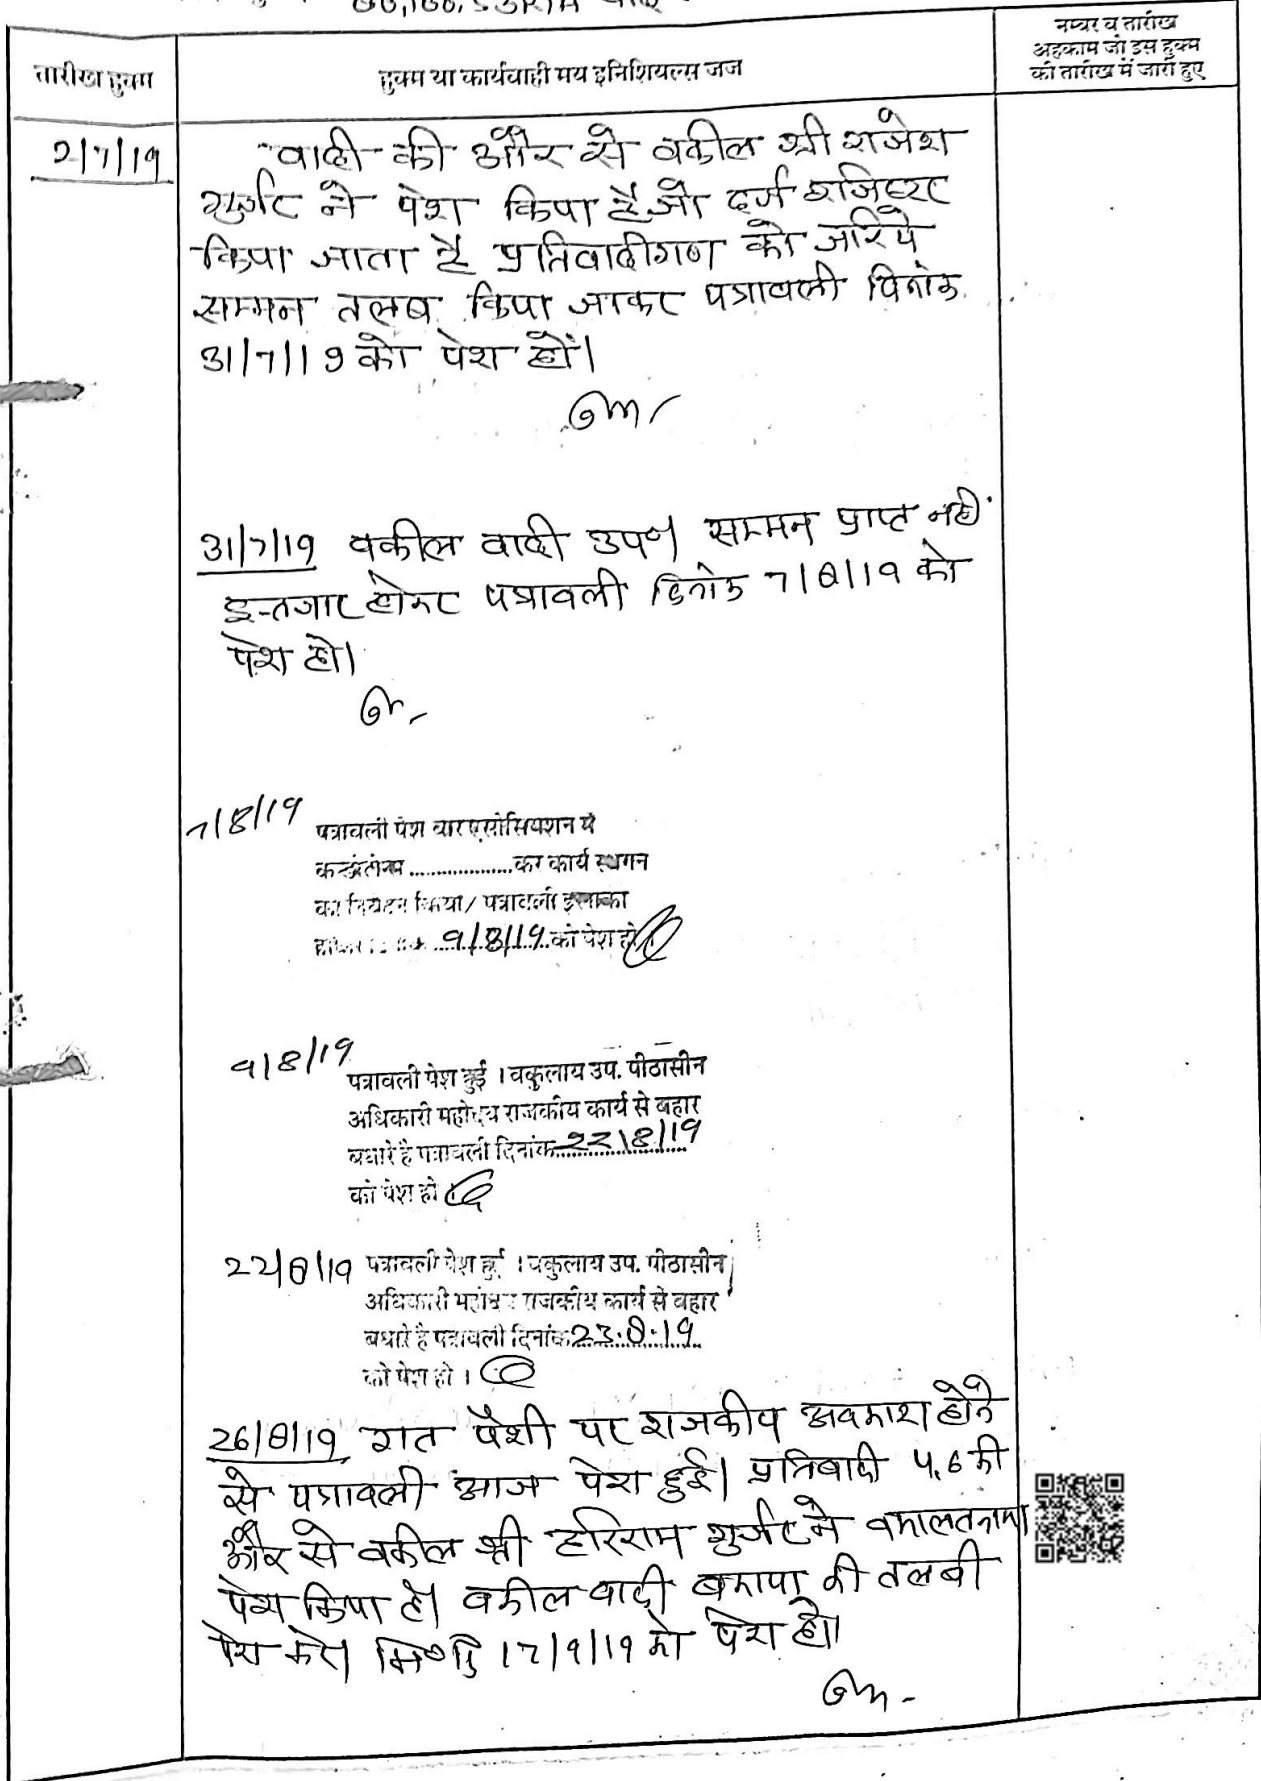 तारीख हुक्म
हुक्म या कार्यवाही मय इनिशियल्स जज
नम्बर व तारीख
अहकाम जो इस हुक्म
की तारीख में जारी हुए
2/7/19
वादी की और से वकील श्री राजेश
गुर्जर ने पेश किया है जो दर्ज रजिस्टर
किया जाता है प्रतिवादीगण को जरिये
सम्मन तलब किया जाकर पत्रावली दिनांक
31/7/19 को पेश हों।
31/7/19 वकील वादी उप० सम्मन प्राप्त नही
इन्तजार होकर पत्रावली दिनांक 7/8/19 को
पेश हो।
7/8/19
पत्रावली पेश बार एसोसियशन ने
.................. कर कार्य स्थगन
का निवेदन किया/ पत्रावली
9/8/19 को पेश हो
9/8/19
पत्रावली पेश हुई । वकुलाय उप. पीठासीन
अधिकारी महोदय राजकीय कार्य से बहार
बधारे है पत्रावली दिनांक 22/8/19
को पेश हो
22/8/19 पत्रावली पेश हुई । वकुलाय उप. पीठासीन
अधिकारी महोदय राजकीय कार्य से बहार
बधारे है पत्रावली दिनांक 23.8.19
को पेश हो ।
26/8/19 गत पैशी पर राजकीय अवकाश होने
से पत्रावली आज पेश हुई। प्रतिवादी 4,6 की
और से वकील श्री हरिराम गुर्जर ने वकालतनामा
पेश किया है। वकील वादी बकाया की तलबी
पेश करे। 17/9/19 को पेश हो।